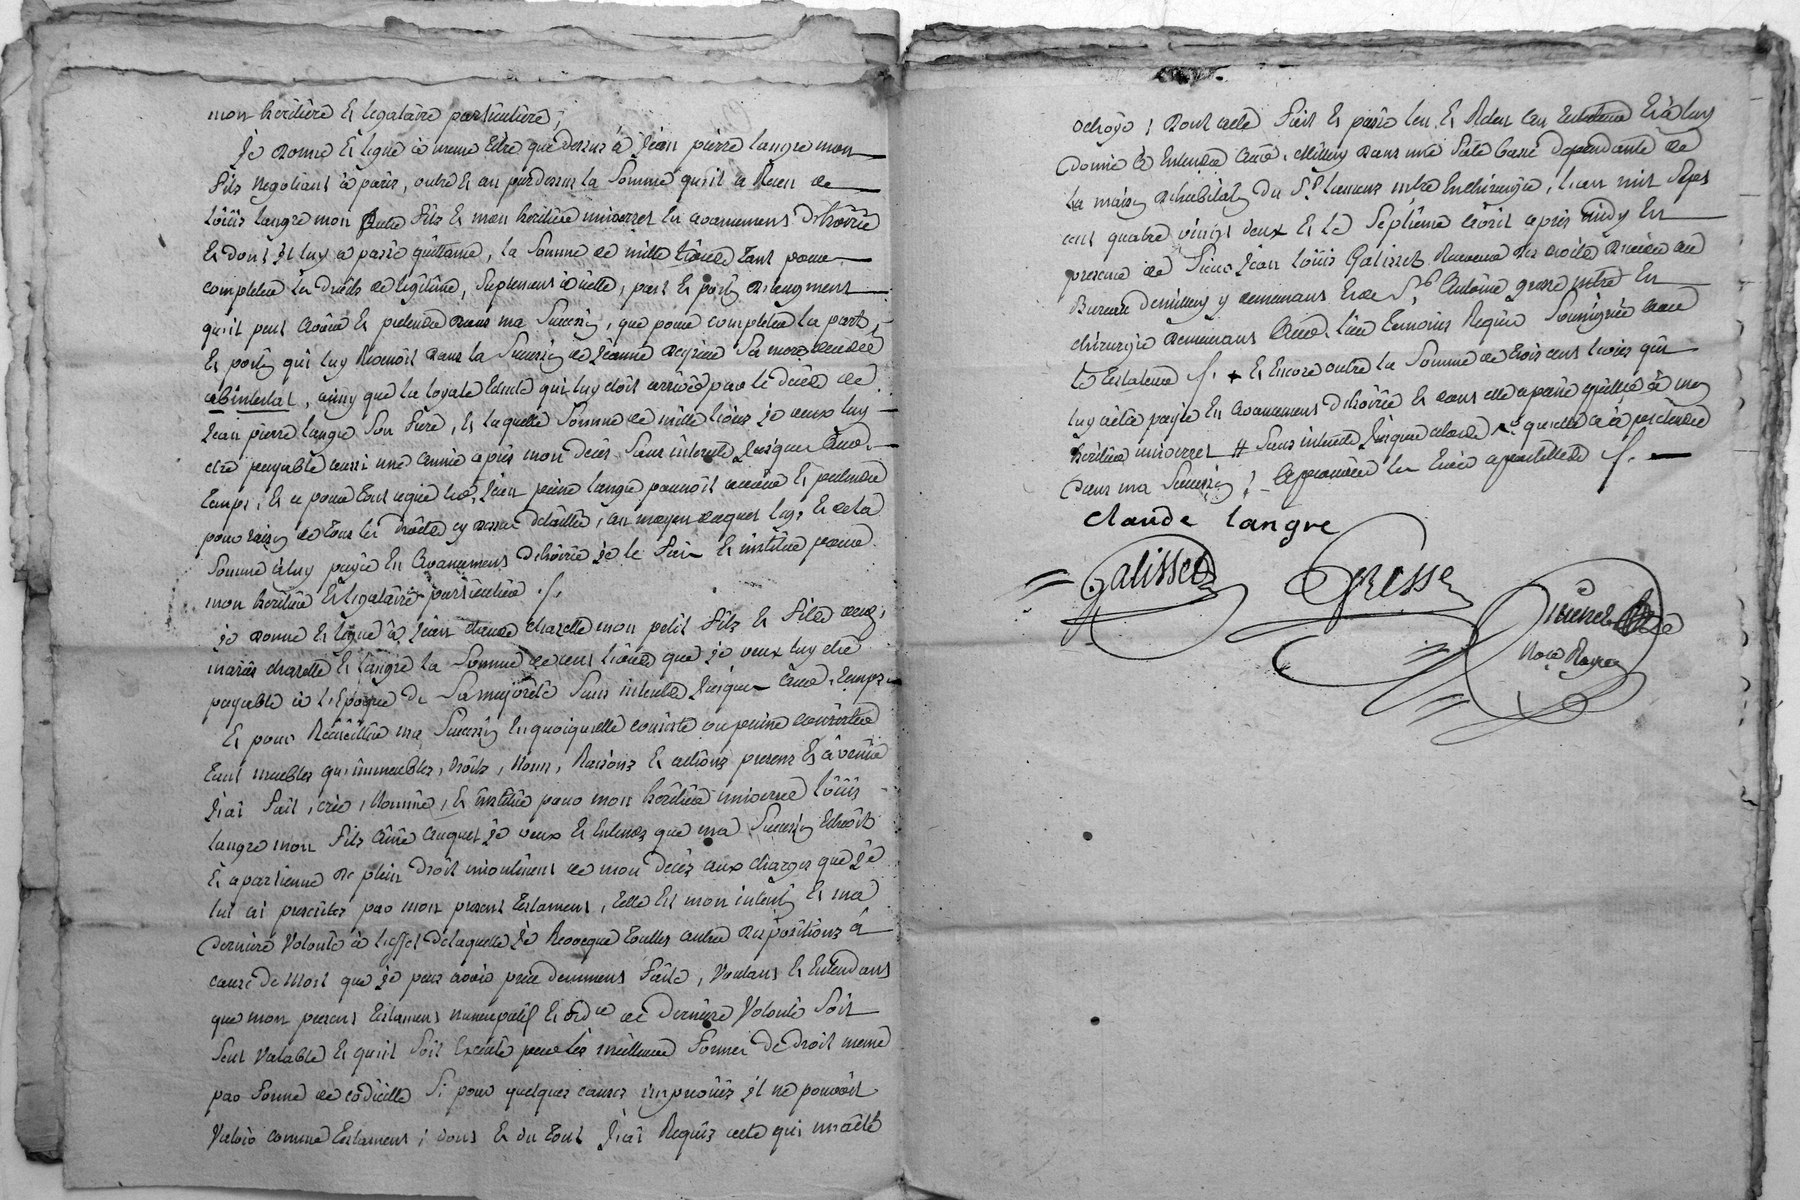 mon heritiere et legataire particuliere ;
Je donne et legue à meme titre que dessus à Jean pierre langre mon
fils negotiant à paris, outre et au pardessus la somme qu'il a Receu de
Loüis langre mon autre fils et mon heritier universel en avancement d'hoirie
et dont il luy a passé quittance, la somme de mille livres tant pour
completer les droits de legitime, suplement d'icelle, part et pon d'augment
qu'il peut avoir et pretendre dans ma Succeson, que pour completer la part
et pon qui luy Revenoit dans la Succeson de Jeanne sa mere decedée
abintestat, ainsy que la loyale echute qui luy etoit arrivée par le décès de
Jean pierre langre son frere, et laquelle somme de mille livres je veux luy
etre payable aussi une année après mon décès sans interets jusques aud.
temps, et ce pour tout ce que led. Jean pierre langre pourroit avoir et pretendre
pour raison de tous les droits cy dessus detaillés, au moyen duquel legs et de la
somme à luy payée en avancement d'hoirie je le fais et institue pour
mon heritier et legataire particulier ./.
Je donne et legue à Jean claude chazelle mon petit fils et fils aud.
mariés chazelle et langre la somme de cent livres que je veux luy etre
payable à l'Epoque de sa majorité sans interets jusques aud. temps.
Et pour Recüeillir ma Succeson en quoiquelle consiste ou puisse consister
tant meubles qu'immeubles, droits, noms, Raisons et actions presens et à venir
J'ai fait, créé, nommé, et institué pour mon heritier universel Loüis
langre mon fils aîné auquel je veux et entends que ma Succeson echoit
et apartienne de plein droit incontinent de mon décès aux charges que je
lui ai prescrites par mon present testament, telle est mon intenton et ma
derniere volonté à l'effet de laquelle je Revoque toutes autres dispositions à
cause de mort que je peux avoir précedemment faite, voulant et entendant
que mon present testament nuncupatif et ordce de derniere volonté soit
seul valable et qu'il soit executé par les meilleures formes de droit meme
par forme de codicille si pour quelques causes imprevües il ne pouvoit
valoir comme testament ; dont et du tout j'ai Requis acte qui m'a été
octroyé ; dont acte fait et passé leu et Releu au testateur et à luy
donné à entendre aud. Millery dans une sale basse dependante de
la maison d'habitation du Sr mtre en chirurgie, l'an mil sept
cent quatre vingt deux et le septieme avril après midy en
presence de sieur Jean Loüis Galisset Receveur des droits du
Bureau de millery y demeurant et de Sr Antoine gresse mtre en
chirurgie demeurant aud. lieu temoins Requis soussignés avec
le testateur ./. + et encore outre la somme de trois cent livres qui
luy a été payée en avancement d'hoirie et dont elle a passé quittance à mon
heritier universel # sans interets jusques alors quelle a à pretendre
dans ma Succeson ; approuvées les trois apostilles ./.
claude langre
Galisset
Gresse
Nore Royal